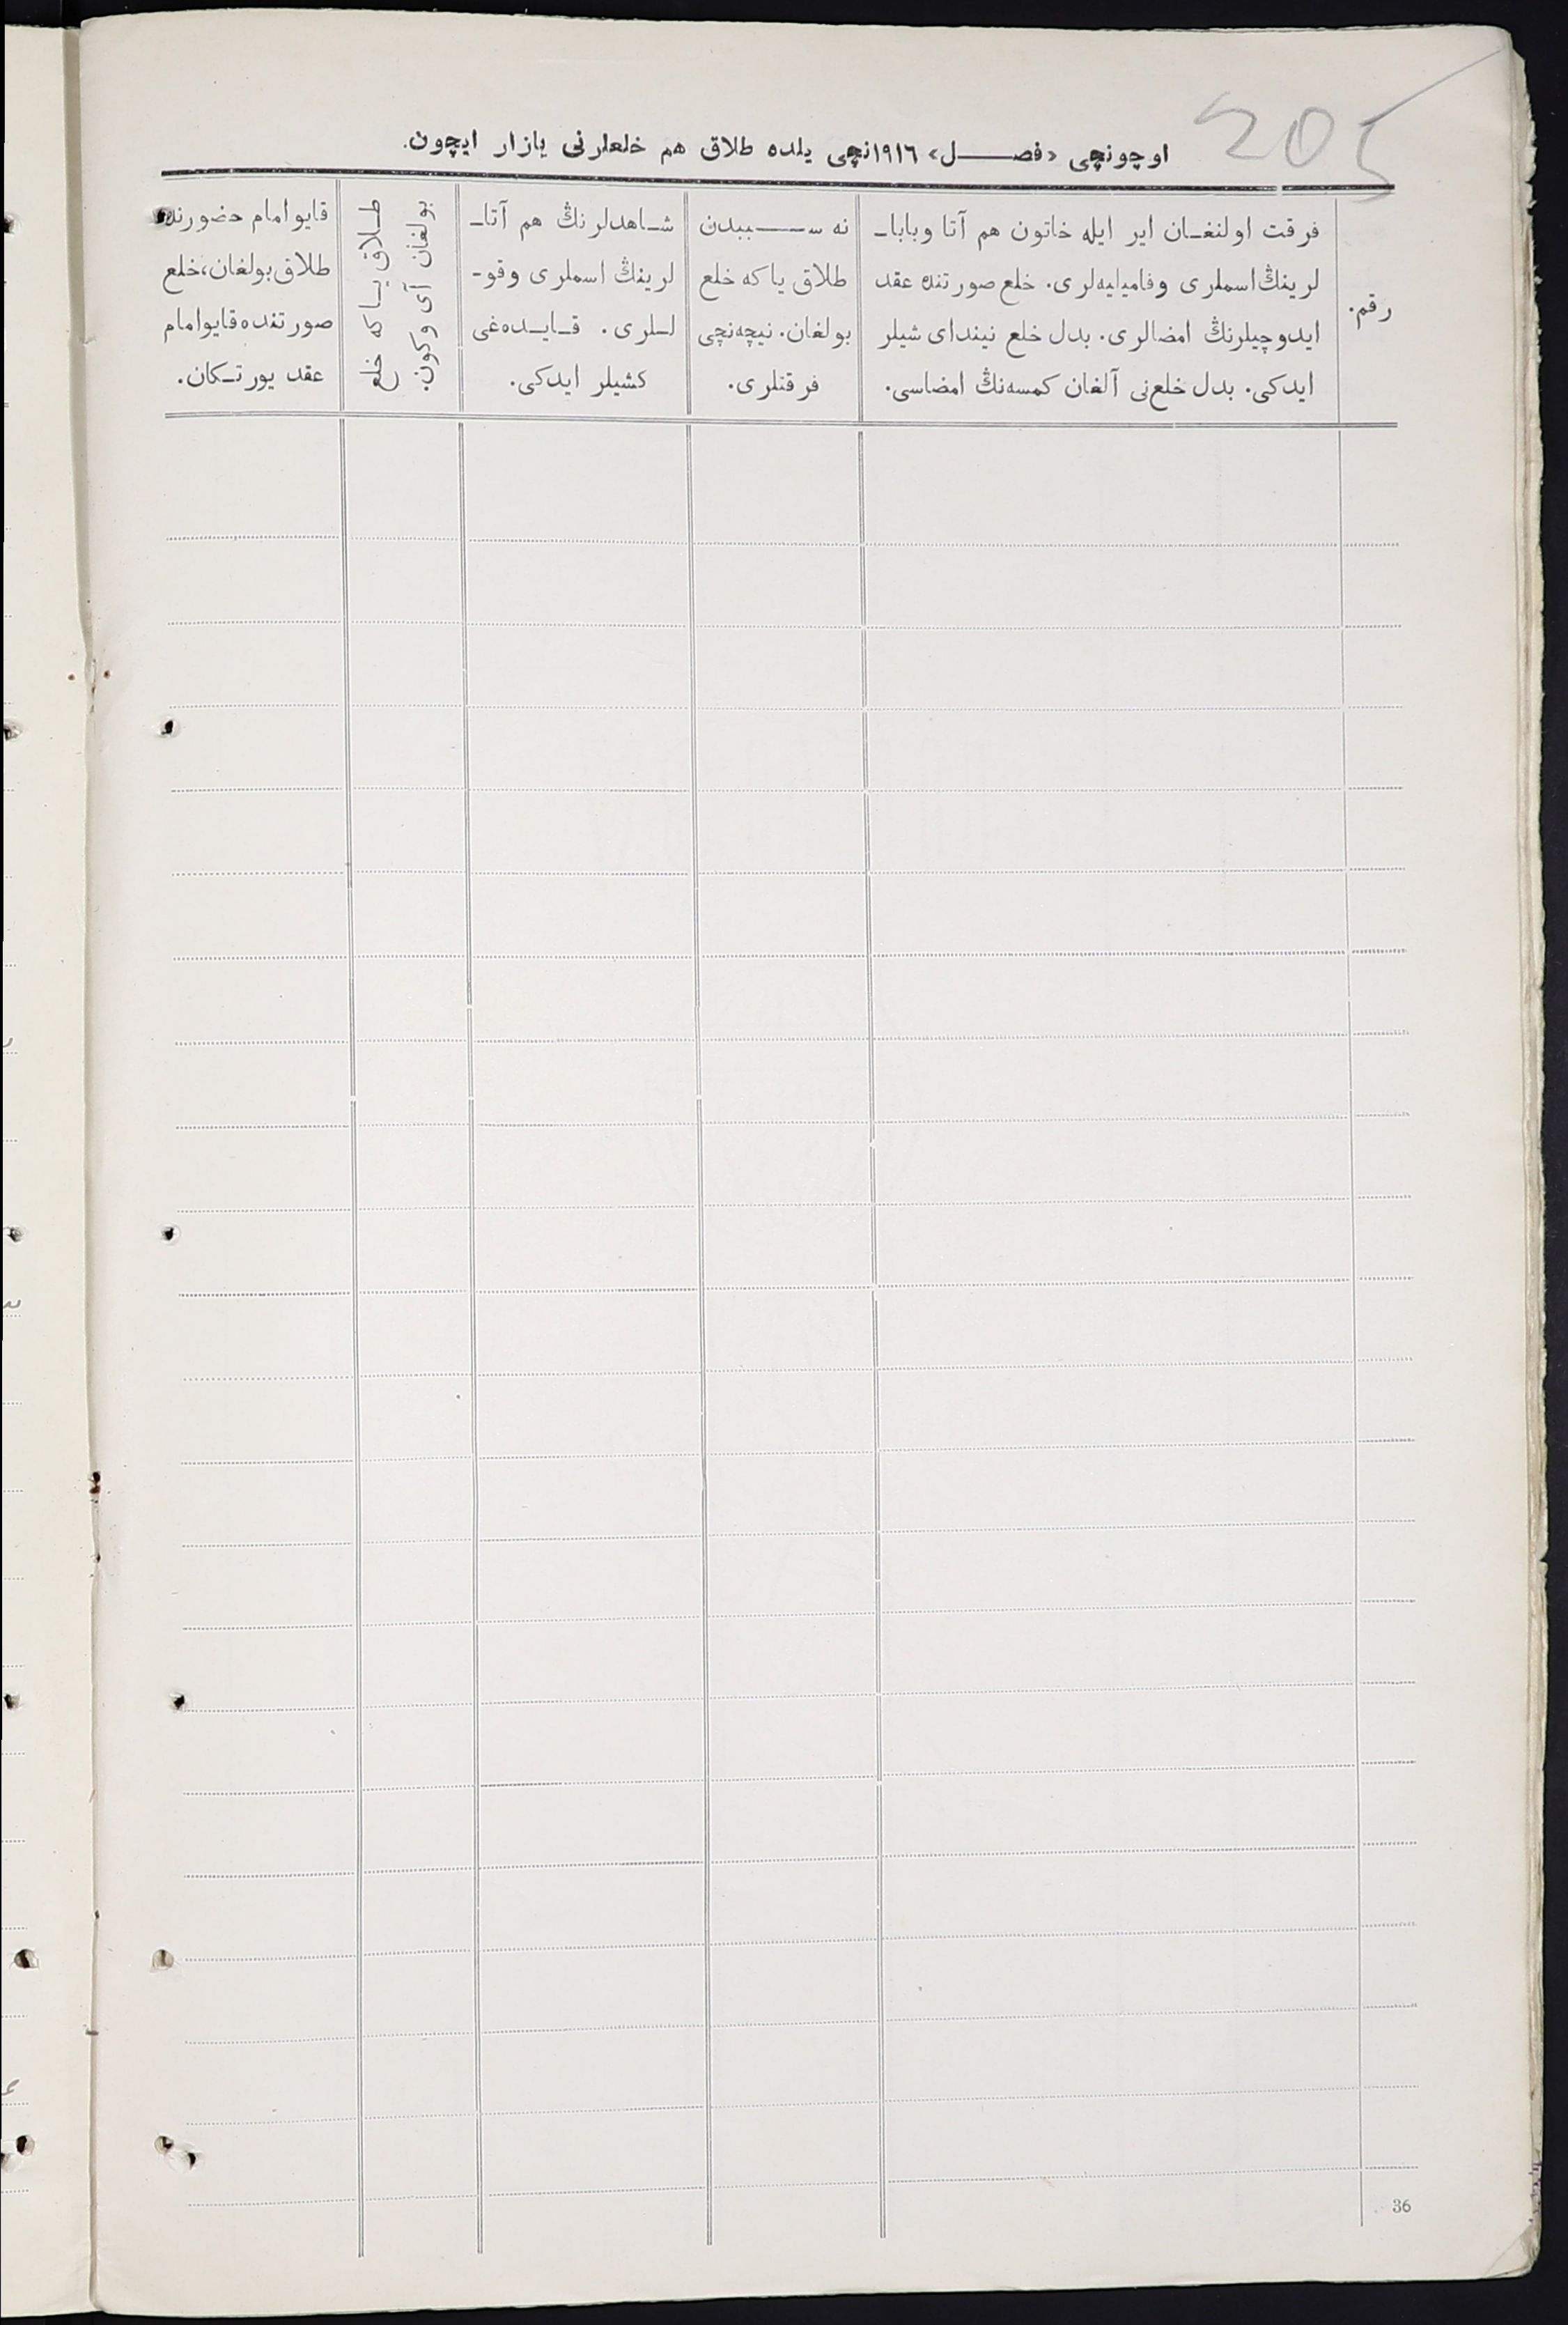 205
اوچونچی «فصل» ۱۹۱٦نچی یلده طلاق هم خلعلرنی یازار ایچون.
رقم.
فرقت اولنغان ایر ایله خاتون هم آتا وبابا-
لرینڭ اسملری وفامیلیه‌لری. خلع صورتنده عقد
ایدوچیلرنڭ امضالری. بدل خلع نیندای شیلر
ایدکی. بدل خلع‌نی آلغان کمسه‌نڭ امضاسی.
نه سببدن
طلاق یا که خلع
بولغان. نیچه‌نچی
فرقتلری.
شاهدلرنڭ هم آتا-
لرینڭ اسملری وقو-
للری. قایده‌غی
کشیلر ایدکی.
طلاق یا که خلع
بولغان آی وکون.
قایو امام حضورنده
طلاق بولغان، خلع
صورتنده قایو امام
عقد یورتکان.
36